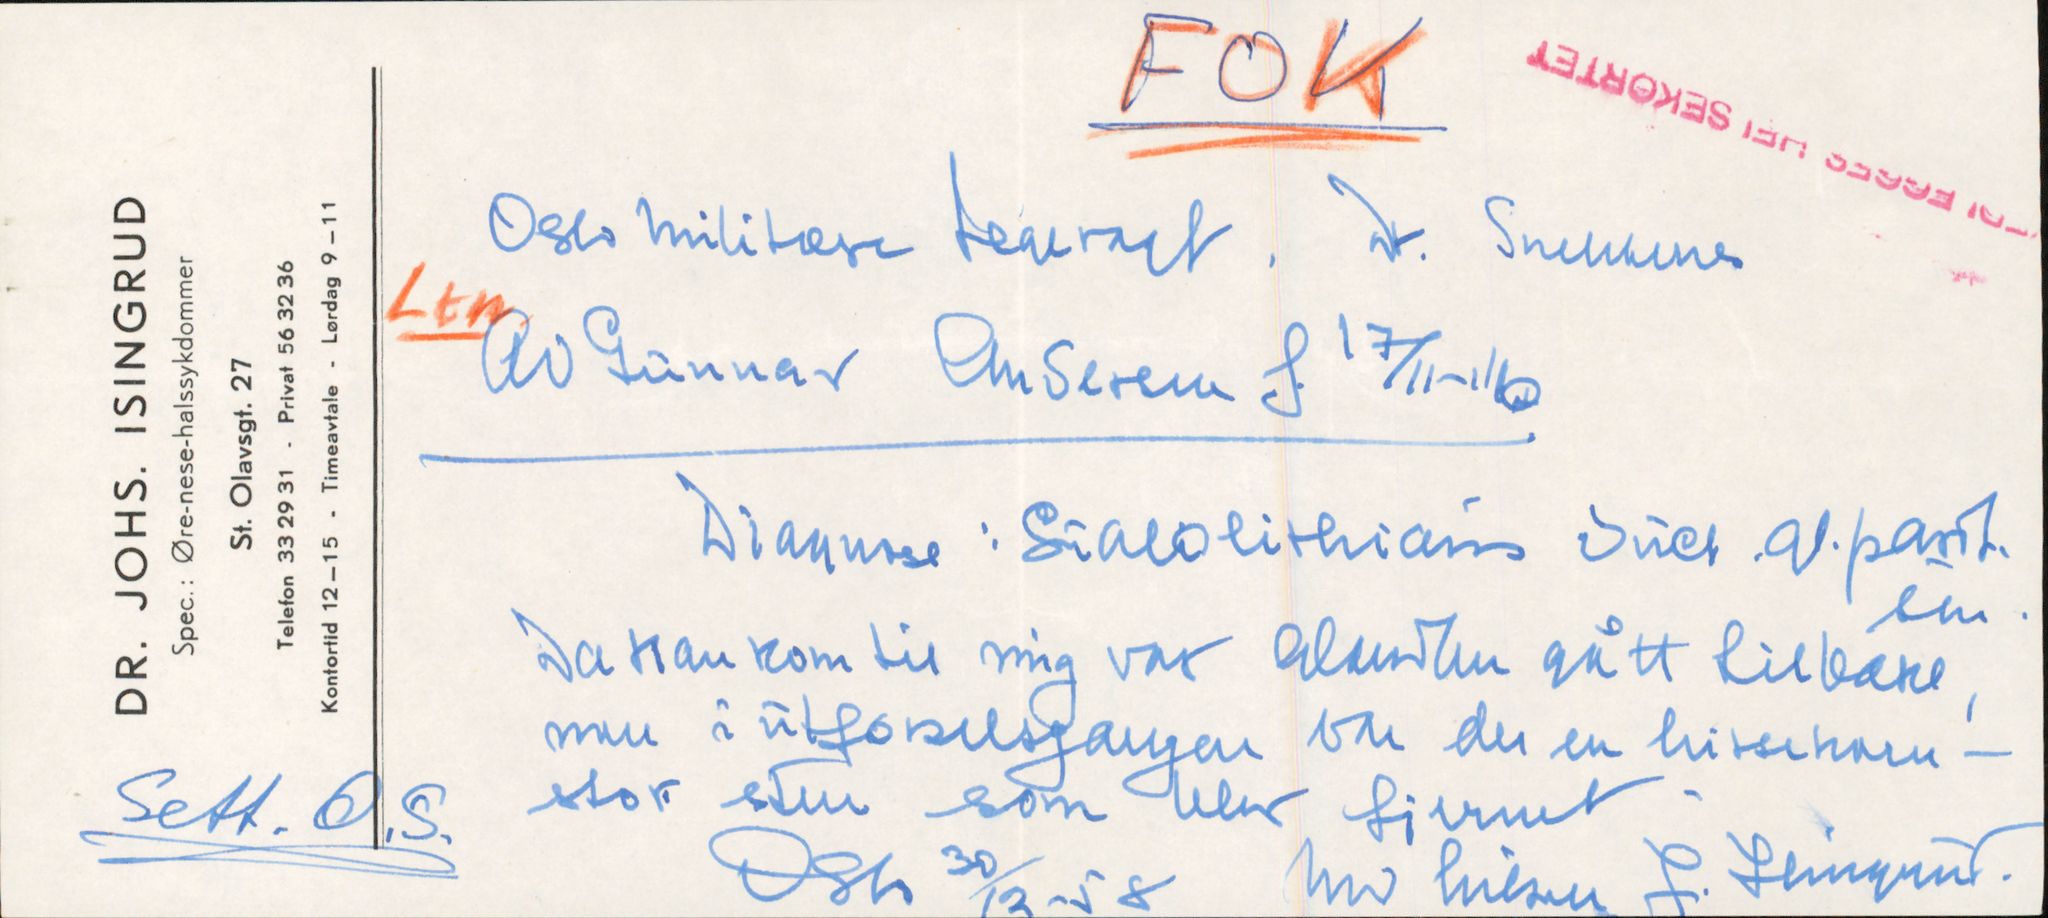 FOK
DR. JOHS. ISINGRUD
Spec.: Øre-nese-halssykdommer
St. Olavsgt. 27
Telefon 33 29 31 - Privat 56 32 36
Kontortid 12-15 - Timeavtale - Lørdag 9-11
HELSEKORTET
Oslo militære legevakt. Dr.
Ltn.
Gunnar Andersen f. 17/11-
Diagnose: Sialolithiasis duct. gl. parot.
sin.
Da han kom til mig var glandlen gått tilbake,
men i utførselsgangen var der en hirsekorn-
stor sten som blev fjernet.
Oslo 30/12-58 Med hilsen J. Isingrud.
Sett. O.S.